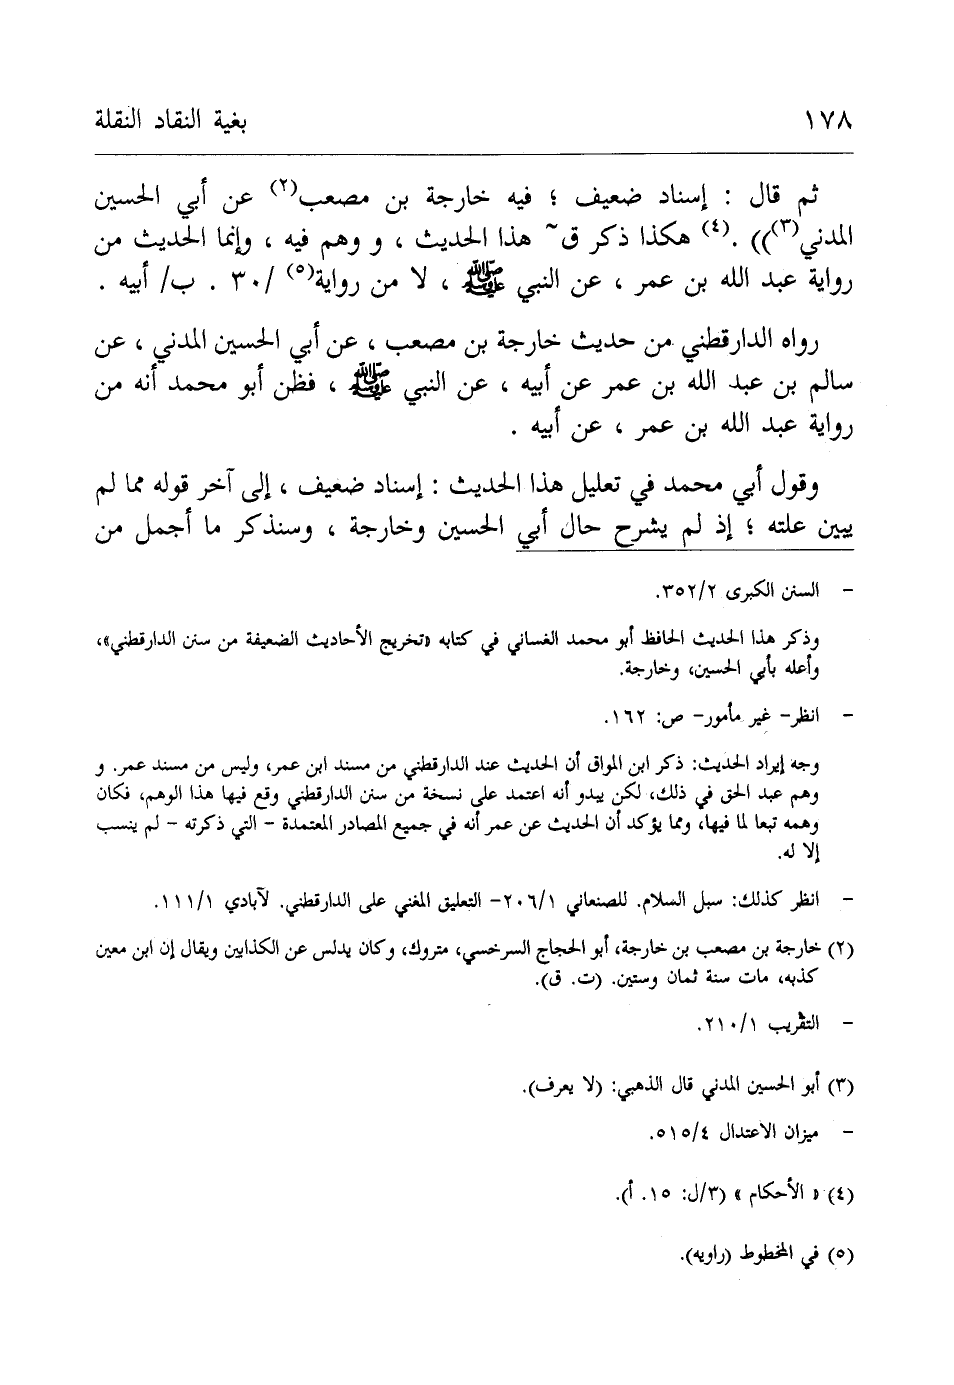 ١٧٨ بغية النقاد النقلة
ثم قال : إسناد ضعيف ؛ فيه خارجة بن مصعب(٢) عن أبي الحسين
المدني(٣))) .(٤) هكذا ذكر ق~ هذا الحديث ، و وهم فيه ، وإنما الحديث من
رواية عبد الله بن عمر ، عن النبي ﷺ ، لا من رواية(٥) /٣٠ . ب/ أبيه .
رواه الدارقطني من حديث خارجة بن مصعب ، عن أبي الحسين المدني ، عن
سالم بن عبد الله بن عمر عن أبيه ، عن النبي ﷺ ، فظن أبو محمد أنه من
رواية عبد الله بن عمر ، عن أبيه .
وقول أبي محمد في تعليل هذا الحديث : إسناد ضعيف ، إلى آخر قوله مما لم
يبين علته ؛ إذ لم يشرح حال أبي الحسين وخارجة ، وسنذكر ما أجمل من
- السنن الكبرى ٣٥٢/٢.
وذكر هذا الحديث الحافظ أبو محمد الغساني في كتابه «تخريج الأحاديث الضعيفة من سنن الدارقطني»،
وأعله بأبي الحسين، وخارجة.
- انظر- غير مأمور- ص: ١٦٢.
وجه إيراد الحديث: ذكر ابن المواق أن الحديث عند الدارقطني من مسند ابن عمر، وليس من مسند عمر. و
وهم عبد الحق في ذلك، لكن يبدو أنه اعتمد على نسخة من سنن الدارقطني وقع فيها هذا الوهم، فكان
وهمه تبعا لما فيها، ومما يؤكد أن الحديث عن عمر أنه في جميع المصادر المعتمدة - التي ذكرته - لم ينسب
إلا له.
- انظر كذلك: سبل السلام. للصنعاني ٢٠٦/١- التعليق المغني على الدارقطني. لآبادي ١١١/١.
(٢) خارجة بن مصعب بن خارجة، أبو الحجاج السرخسي، متروك، وكان يدلس عن الكذابين ويقال إن ابن معين
كذبه، مات سنة ثمان وستين. (ت. ق).
- التقريب ٢١٠/١.
(٣) أبو الحسين المدني قال الذهبي: (لا يعرف).
- ميزان الاعتدال ٥١٥/٤.
(٤) « الأحكام » (٣/ل: ١٥. أ).
(٥) في المخطوط (راويه).